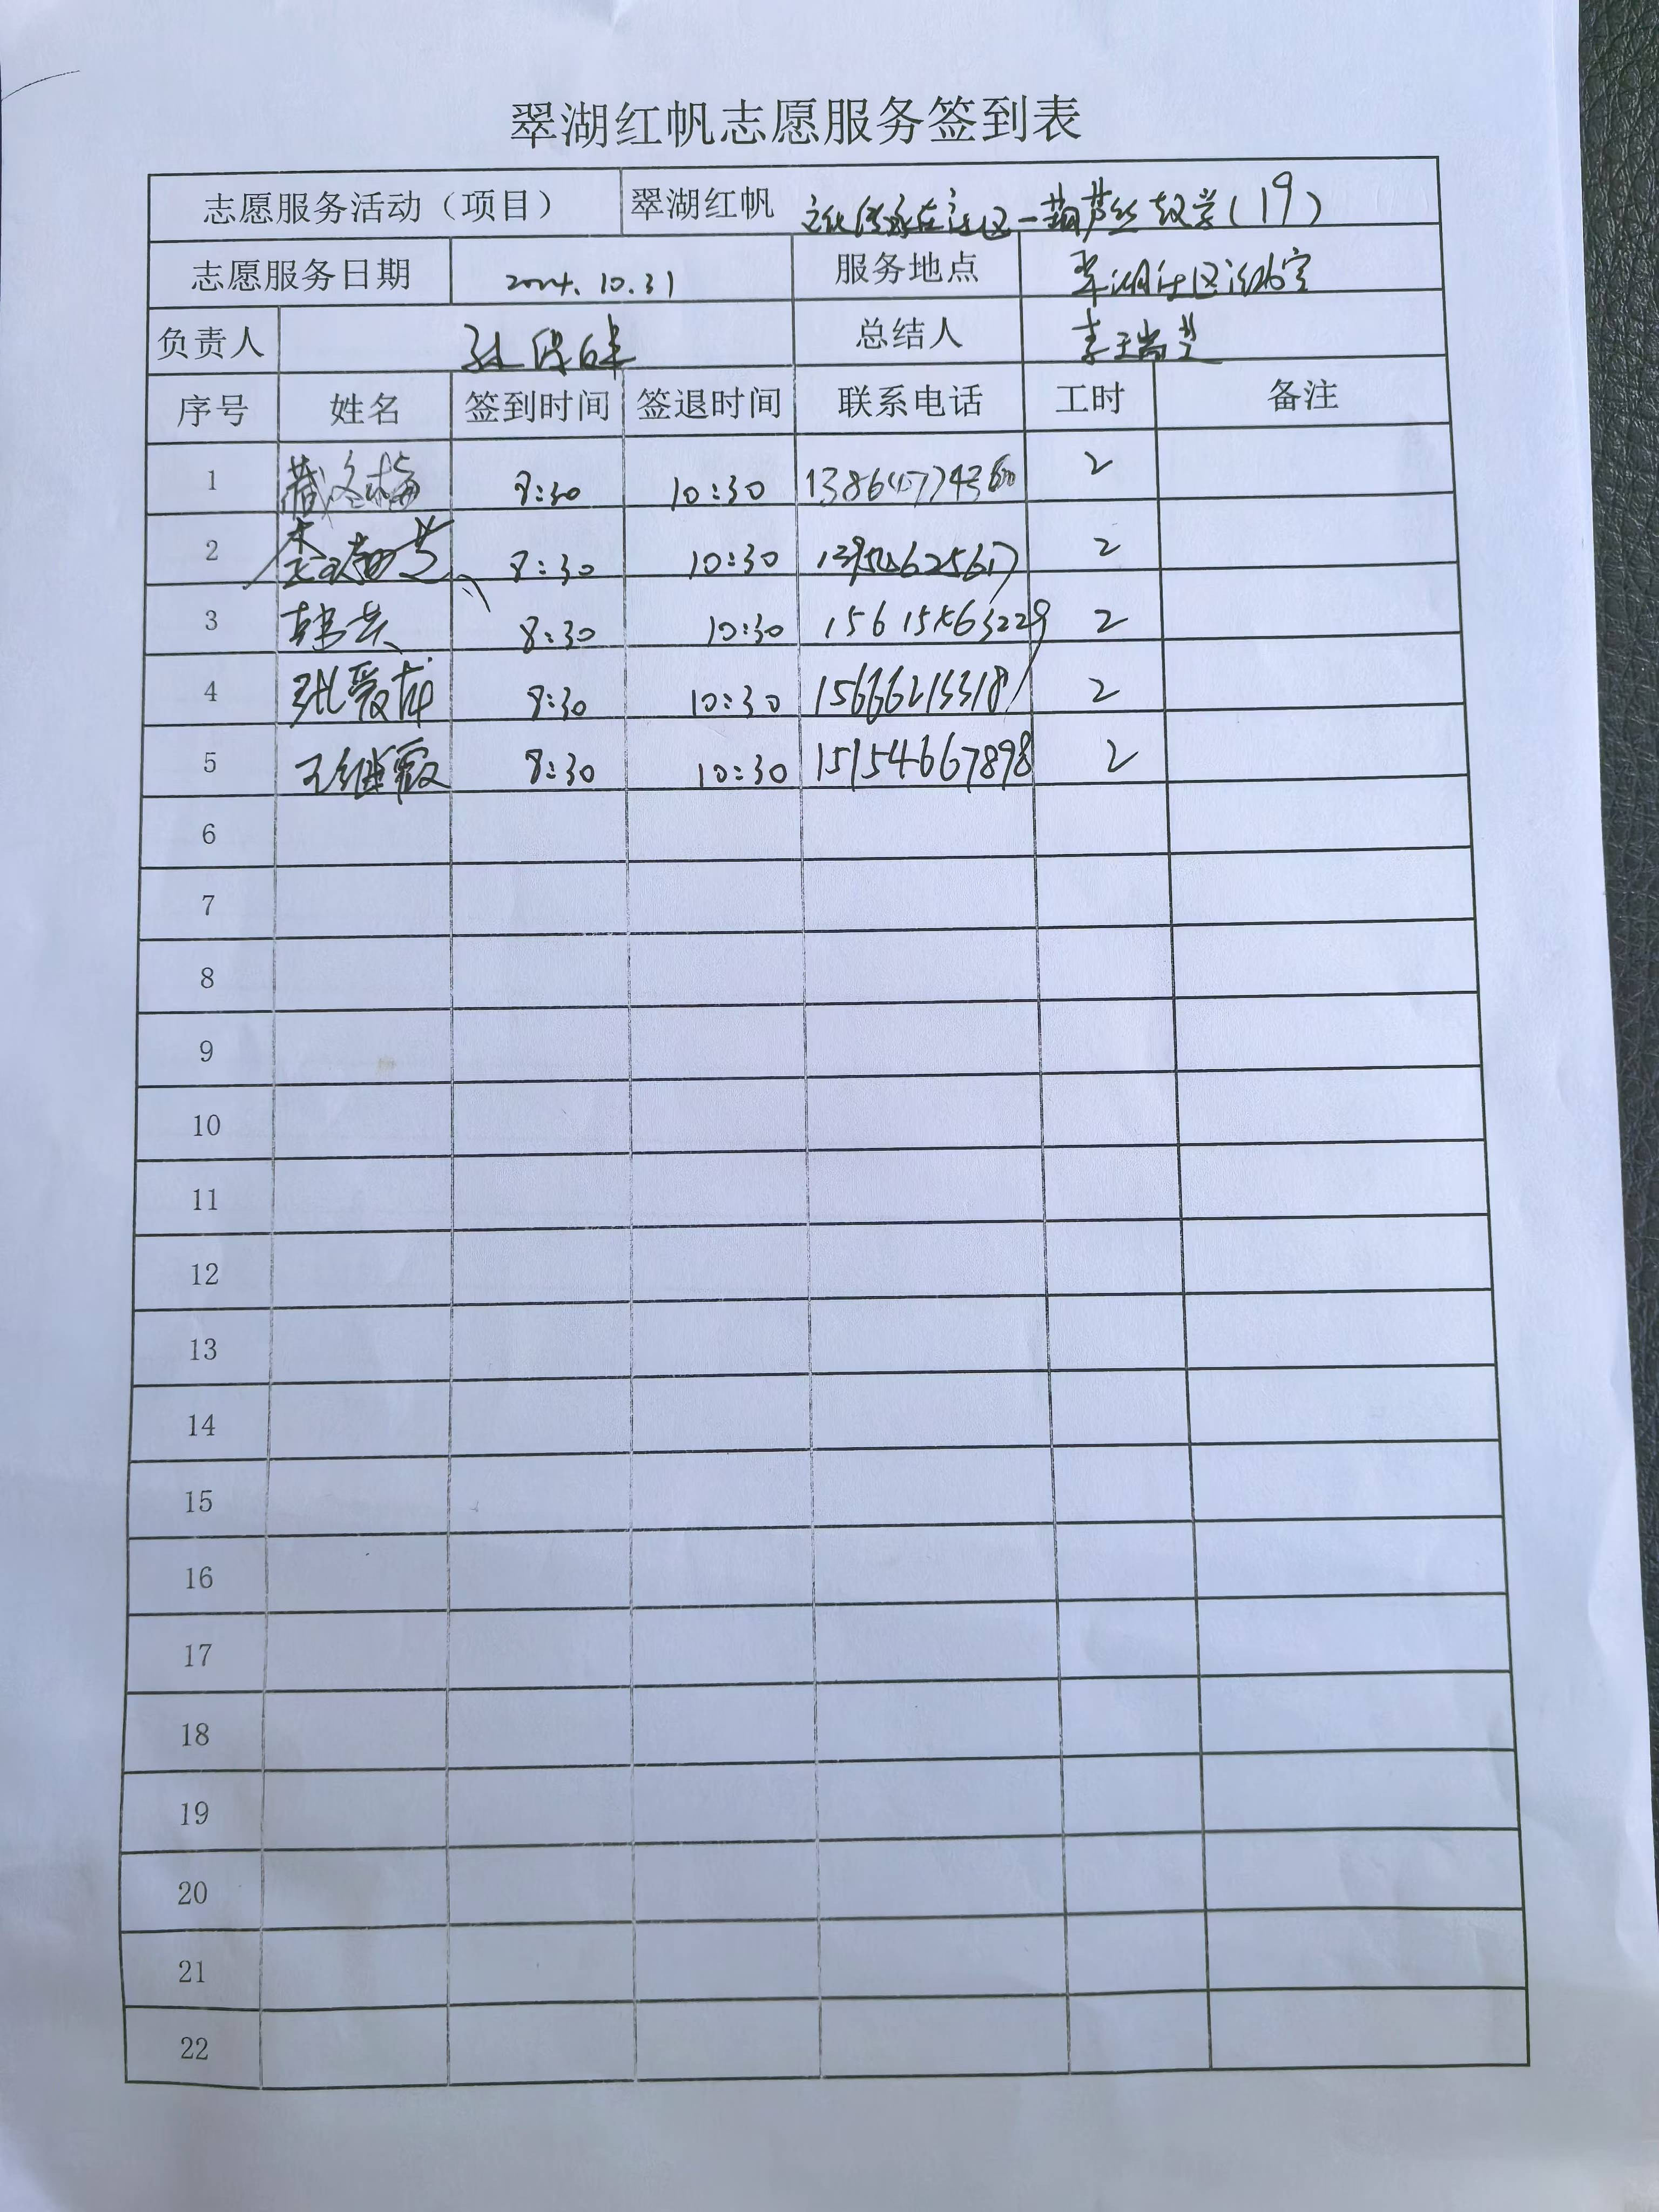 翠湖红帆志愿服务签到表
志愿服务活动（项目） 翠湖红帆 文化传承在社区一葫芦丝教学(19)
志愿服务日期 2024.10.31 服务地点 翠湖社区活动室
负责人 孙 总结人 李瑞芝
序号 姓名 签到时间 签退时间 联系电话 工时 备注
1 臧冬梅 8:30 10:30 2
2 李瑞芝 8:30 10:30 2
3 韩芸 8:30 10:30 2
4 张爱萍 8:30 10:30 2
5 王继霞 8:30 10:30 15154667898 2
6
7
8
9
10
11
12
13
14
15
16
17
18
19
20
21
22